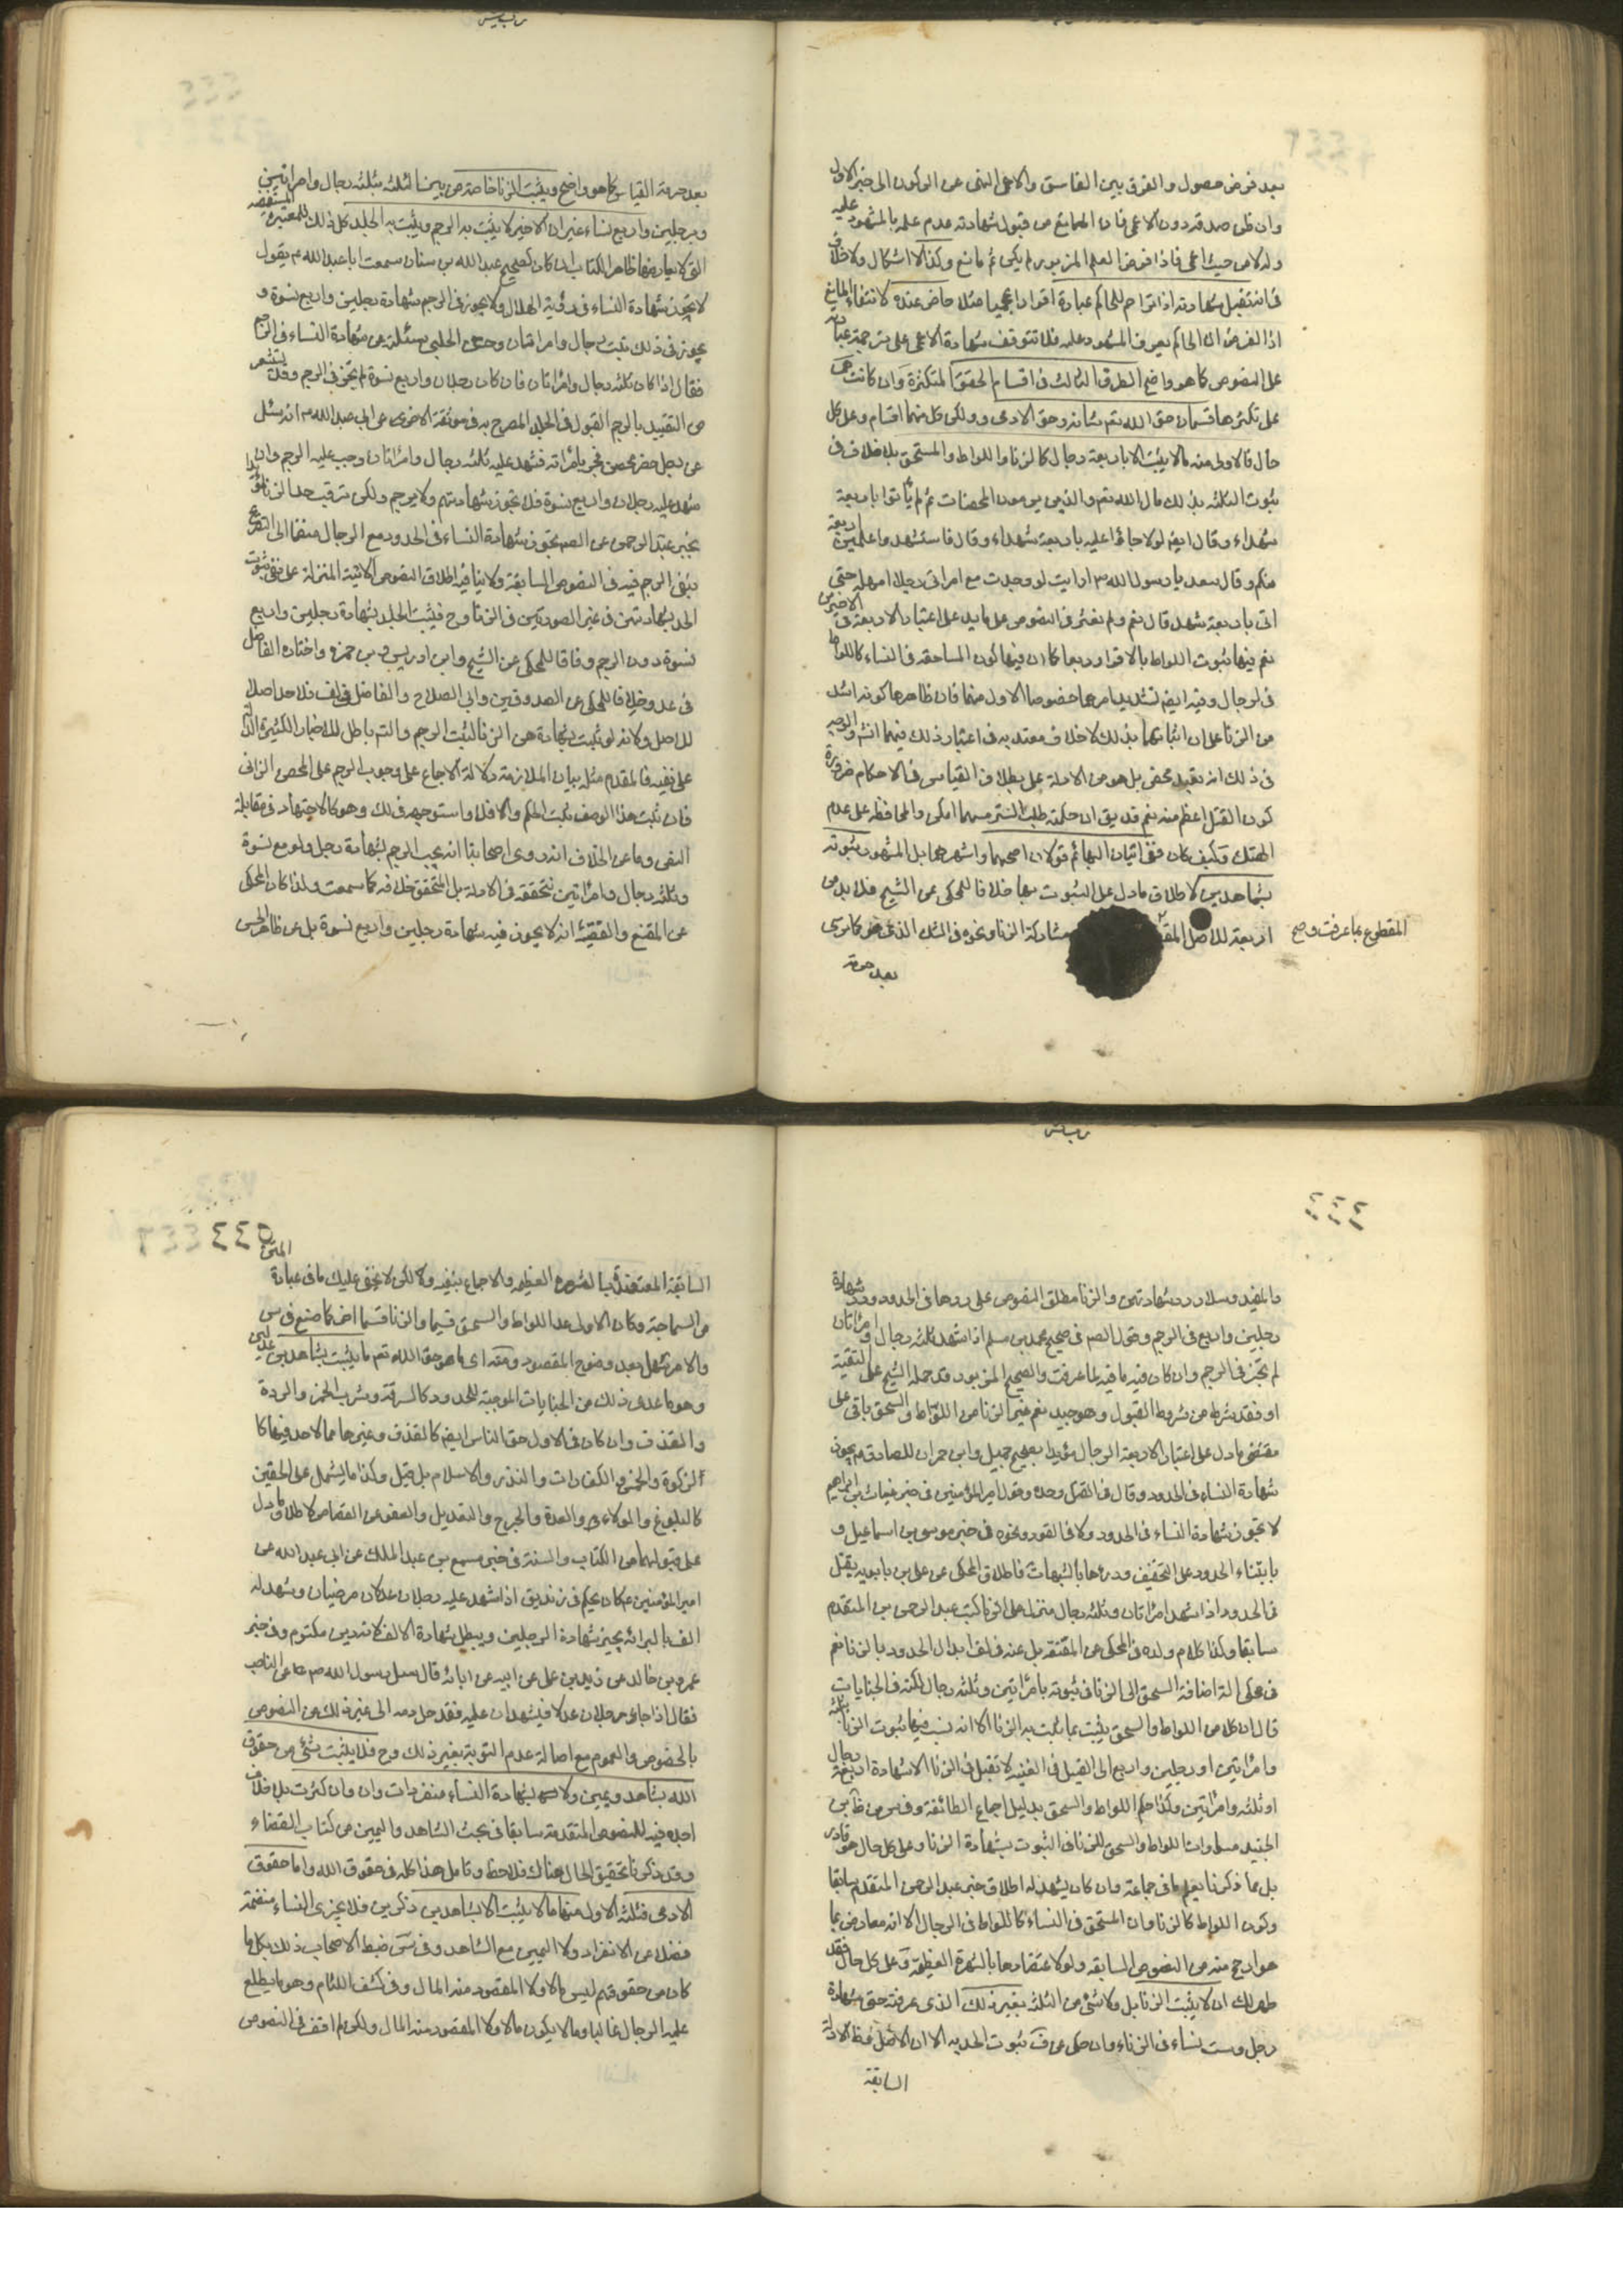 بعد فرض حصول والفرق بين الفاسق والاعمى الغنى عن الركون الى خبر الاول
وان ظن صدقه دون الاعمى فان المانع من قبول شهادته عدم علمه بالمشهود عليه
ولو من حيث اعمى فاذا فرض العلم المزبور لم يكن ثم مانع وكذا لا اشكال ولا خلاف
فى انه تقبل شهادته اذا ترجم للحاكم عبارة اقوام اعجميا مثلا حاضر عنده لانتفاء المانع
اذ الفرض ان الحاكم يعرف المشهود عليه فلا تتوقف شهادة الاعمى على ترجمة عبارته
على النصوص كما هو واضح الطرف الثالث فى اقسام الحقوق المتكثرة وان كانت هى
على تكثرها قسمان حق الله تعم شانه وحق الادمى ولكن كل منهما اقسام وعلى كل
حال فالاول منه ما لا يثبت الا باربعة رجال كالزنا واللواط والسحق بلا خلاف فى
ثبوت الثلثة بذلك قال الله تعم والذين يرمون المحصنات ثم لم ياتوا باربعة
شهداء وقال ايضم لولا جاؤا عليه باربعة شهداء وقال فاستشهدوا عليهن اربعة
منكم وقال سعد يا رسول الله ص ارايت لو وجدت مع امراتى رجلا امهله حتى
اتى باربعة شهداء قال نعم ولم نعثر فى النصوص على ما يدل على اعتبار الاربعة فى الاخيرين
نعم فيها ثبوت اللواط بالاقرار اربعا كما ان فيها كون المساحقة فى النساء كاللواط
فى الرجال وفيه ايضم تشديد امرهما خصوصا الاول منهما فان ظاهرها كونه اشد
من الزنا على ان اثباتهما بذلك لا خلاف معتد به فى اعتبار ذلك فيهما انثم والوجه
فى ذلك انه تعبد محض بل هو من الادلة على بطلان القياس فى الاحكام ضرورة
كون القتل اعظم منه نعم قد يق ان حكمته طلب الستر مهما امكن والمحافظة على عدم
الهتك وكيف كان ففى اتيان البهائم قولان اصحهما واشهرهما بل المشهور ثبوته
بشاهدين لاطلاق ما دل على الثبوت بهما خلافا للمحكى عن الشيخ فلا بد من
اربعة للاصل المقطوع بما عرفت صح مشاركة الزنا ونحوه فى الهتك الذى هو كما ترى
بعد حرمة
بعد حرمة القياس كما هو واضح ويثبت الزنا خاصة من بين الثلثة بثلثه رجال وامراتين
وبرجلين واربع نساء غير ان الاخير لا يثبت به الرجم ويثبت به الجلد كل ذلك للمعتبرة المستفيضة
التى لا يعارضها ظاهر الكتاب ان كان كصحيح عبد الله بن سنان سمعت ابا عبد الله ع يقول
لا يجوز شهادة النساء فى رؤية الهلال ولا يجوز فى الرجم شهادة رجلين واربع نسوة و
يجوز فى ذلك ثلثة رجال وامراتان وحسن الحلبى سئلته عن شهادة النساء فى الرجم
فقال اذا كان ثلثه رجال وامراتان فان كان رجلان واربع نسوة لم يجز فى الرجم وقد يستشعر
من التقييد بالرجم القبول فى الجلد المصرح به فى موثقة الاخرى عن ابى عبد الله ع انه سئل
عن رجل محصن فجر بامراته فشهد عليه ثلثه رجال وامراتان وجب عليه الرجم وان
شهد عليه رجلان واربع نسوة فلا تجوز شهادتهم ولا يرجم ولكن يضرب حد الزنا
بخبر عبد الرحمن عن الصم تجوز شهادة النساء فى الحدود مع الرجال منضما الى التصريح
بنفى الرجم فيه فى النصوص السابقة ولا ينافيه اطلاق النصوص الاتية المنزلة على نفى ثبوت
الحد بشهادتهن فى غير الصورتين فى الزنا وح فيثبت الجلد بشهادة رجلين واربع
نسوة دون الرجم وفاقا للمحكى عن الشيخ وابن ادريس وبن حمزه واختاره الفاضل
فى عد وخلافا للمحكى عن الصدوقين وابى الصلاح والفاضل فى لف فلا حد اصلا
للاصل ولانه لو ثبت بشهادة هن الزنا لثبت الرجم والتم باطل للاخبار الكثيرة الدالة
على نفيه فالمقدم مثله بيان الملازمة دلالة الاجماع على وجوب الرجم على المحصن الزانى
فان ثبت هذا الوصف ثبت الحكم والا فلا واستوجهه فى لك وهو كالاجتهاد فى مقابلة
النص وما عن الخلاف انه روى اصحابنا انه يجب الرجم بشهادة رجل ولو مع نسوة
وثلثه رجال وامراتين نتحققه فى الادلة بل المتحقق خلافه كما سمعت ولذا كان المحكى
عن المقنع والفقيه انه لا يجوز فيه شهادة رجلين واربع نسوة بل عن ظاهر الحسن
٤٤٤
والمفيد وسلار رد شهادتهن والزنا مطلق النصوص على ردها فى الحدود ورد شهادة
رجلين واربع فى الرجم وقول الصم فى صحيح محمد بن مسلم اذا شهد ثلثة رجال وامراتان
لم تجز فى الرجم وان كان فيه ما فيه لما عرفت والصحيح المزبور قد حمله الشيخ على التقية
او فقد شرط من شروط القبول وهو جيد نعم غير الزنا من اللواط والسحق باق على
مقتضى ما دل على اعتبار الاربعة الرجال مؤيدا بصحيح جميل وابن حمران للصادق ع يجوز
شهادة النساء فى الحدود وقال فى القتل وحده وقول امير المؤمنين فى خبر غياث بن ابراهيم
لا تجوز شهادة النساء فى الحدود ولا فى القود ونحوه فى خبر موسى بن اسماعيل و
بابتناء الحدود على التخفيف ودرءها بالشبهات فاطلاق المحكى عن على بن بابويه يقبل
فى الحدود اذا شهد امراتان وثلثة رجال منزل على الزنا كخبر عبد الرحمن المتقدم
سابقا وكذا كلام ولده فى المحكى عن المقنعة بل عنه فى لف ابدال الحدود بالزنا نعم
فى محكى اضافة السحق الى الزنا فى ثبوته بامراتين وثلثه رجال لكنه فى الجنايات
قال ان كلا من اللواط والسحق يثبت بما يثبت به الزنا الا انه نسب فيهما ثبوت الزنا بثلثة
وامراتين او رجلين واربع الى القيل فى الغنيه لا تقبل فى الزنا الا شهادة اربعة رجال
او ثلثه وامراتين وكذا حكم اللواط والسحق بدليل اجماع الطائفة وفى
الجنيد مساواة اللواط والسحق للزنا فى الثبوت بشهادة الزنا وعلى كل حال
بل مما ذكرنا يعلم ما فى جماعة وان كان يشهد له اطلاق خبر عبد الرحمن المتقدم سابقا
وكون اللواط كالزنا وان السحق فى النساء كاللواط فى الرجال الا انه معارض بما
هو ارجح منه من النصوص السابقه ولو لاعتضادها بالشهرة العظيمة وعلى كل حال فقد
ظهر لك ان لا يثبت الزنا بل ولا شئ من الثلثه بغير ذلك الذى عرفته حتى شهادة
رجل وست نساء فى الزناء وان حكى عن ف ثبوت الحد به الا ان الاصل وظ الادلة
السابقة
٤٤٥
السابقة المعتضدة بالشهرة العظيمه والاجماع بنفيه ولكن لا يخفى عليك ما فى عبارة المتن
من السماجة وكان الاولى عد اللواط والسحق قسما والزنا قسما اخر كما صنع فى س
والامر سهل بعد وضوح المقصود ومنه اى ما هو حق الله تعم ما يثبت بشاهدين عدلين
وهو ما عدا ذلك من الجنايات الموجبة للحدود كالسرقة وشرب الخمر والردة
والقذف وان كان فى الاول حق الناس ايضم كالقذف وغيرها مما لا حد فيها كا
لزكوة والخمس والكفارات والنذر والاسلام بل قيل وكذا ما يشمل على الحقين
كالبلوغ والولاء والعدة والجرح والتعديل والعفو عن القصاص لاطلاق ما دل
على قبولهما من الكتاب والسنة فى خبر مسمع بن عبد الملك عن ابى عبد الله عن
امير المؤمنين ع كان يحكم فى زنديق اذا شهد عليه رجلان عدلان مرضيان وشهد له
الف بالبرائه يجيز شهادة الرجلين ويبطل شهادة الالف لانه دين مكتوم وفى خبر
عمرو بن خالد عن زيد بن على عن ابيه عن ابائه قال سئل رسول الله ص عن الساحر
فقال اذا جاء رجلان عدلان فيشهدان عليه فقد حل دمه الى غير ذلك من النصوص
بالخصوص والعموم مع اصالة عدم الثبوت بغير ذلك وح فلا يثبت شئ من حقوق
الله بشاهد ويمين ولا بشهادة النساء منفردات وان كثرت بلا خلاف
اجده فيه للنصوص المتقدمة سابقا فى بحث الشاهد واليمين من كتاب القضاء
وقد ذكرنا تحقيق الحال هناك فلاحظ وتامل هذا كله فى حقوق الله واما حقوق
الادمى فثلثه الاول منها ما لا يثبت الا بشاهدين ذكرين فلا يجزى النساء منضمة
فضلا عن الانفراد ولا اليمين مع الشاهد وفى س ضبط الاصحاب ذلك بكل ما
كان من حقوقهم ليس مالا ولا المقصود منه المال وفى كشف اللثام وهو ما يطلع
عليه الرجال غالبا وما لا يكون مالا ولا المقصود منه المال ولكن لم اقف فى النصوص